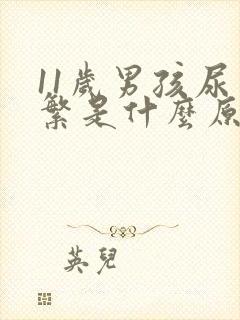 11歲男孩尿
繁是什麼原
英兒